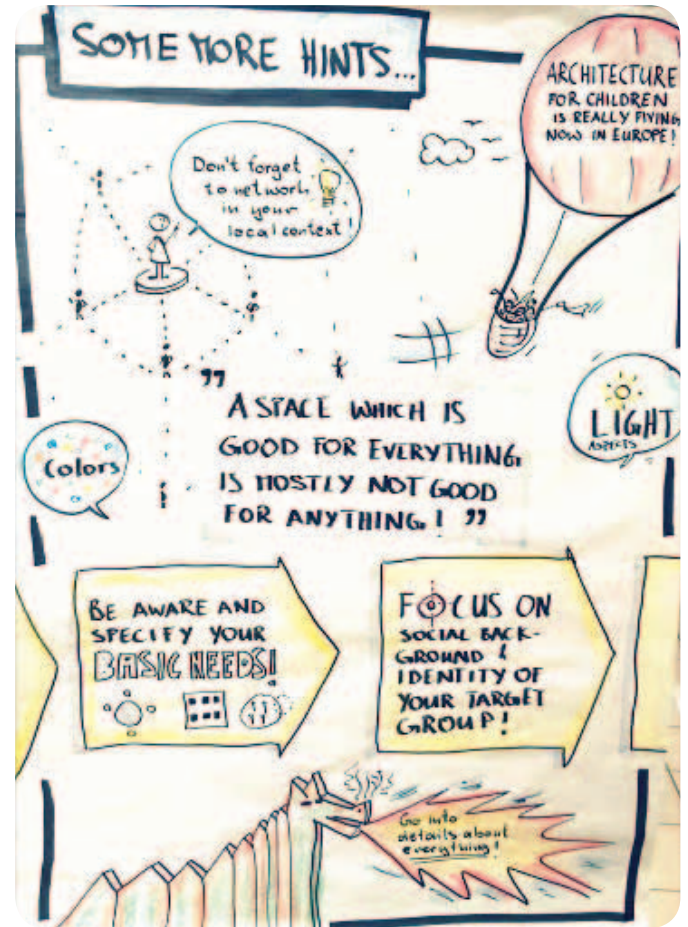 SOME MORE HINTS...
ARCHITECTURE
FOR CHILDREN
IS REALLY FLYING
NOW IN EUROPE!
Don't forget
to network
in your
local context!
"
A SPACE WHICH IS
GOOD FOR EVERYTHING,
IS MOSTLY NOT GOOD
FOR ANYTHING! "
LIGHT
ASPECTS
Colors
BE AWARE AND
SPECIFY YOUR
BASIC NEEDS!
FOCUS ON
SOCIAL BACK-
GROUND &
IDENTITY OF
YOUR TARGET
GROUP!
Go into
details about
everything!